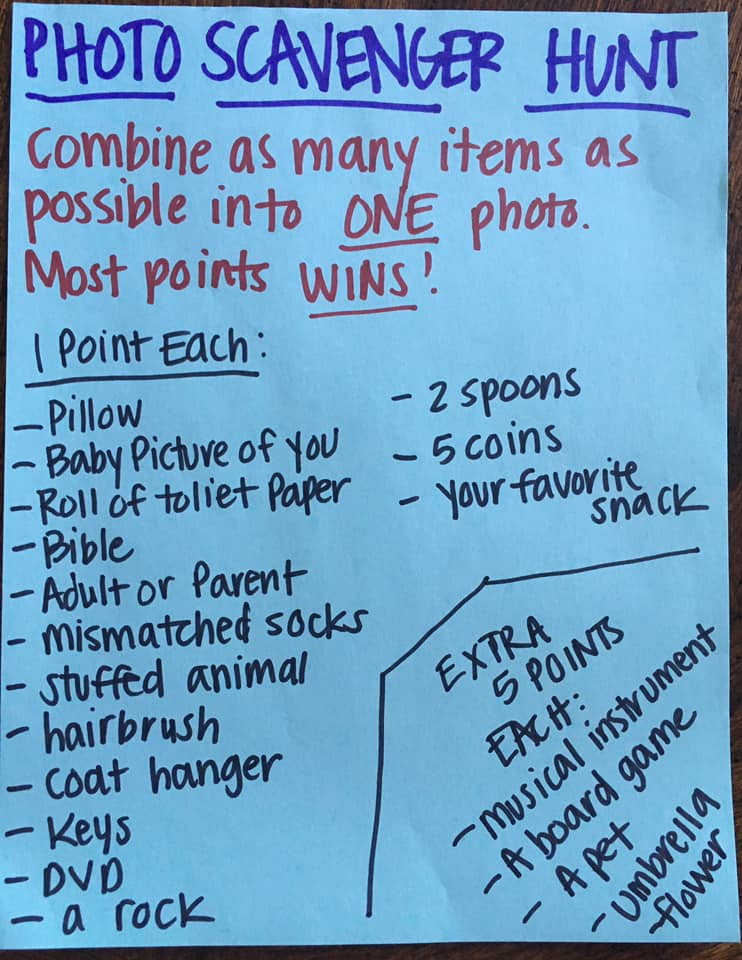 PHOTO SCAVENGER HUNT
Combine as many items as
possible into ONE photo.
Most points WINS!
1 Point Each:
- Pillow
- Baby Picture of you
- Roll of toliet Paper
- Bible
- Adult or Parent
- mismatched socks
- stuffed animal
- hairbrush
- coat hanger
- Keys
- DVD
- a rock
- 2 spoons
- 5 coins
- your favorite
snack
EXTRA
5 POINTS
EACH:
- musical instrument
- A board game
- A pet
- Umbrella
- flower